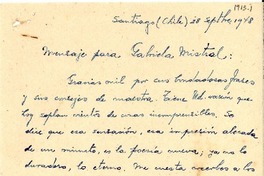 (1915-)
Santiago (Chile) 28 Septbre, 1948
Mensaje para Gabriela Mistral:
Gracias mil por sus bondadosas frases
y sus consejos de maestra. Tiene Ud. razón que
los soplan vientos de cosas incomprensibles. Se
dice que esa sensación, esa impresión alocada
de un minuto, es la poesía nueva; ya no lo
duradero, lo eterno. Me cuesta